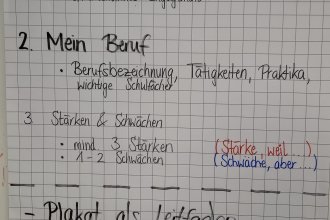 2. Mein Beruf
• Berufsbezeichnung, Tätigkeiten, Praktika,
wichtige Schulfächer
3 Stärken & Schwächen
• mind. 3 Stärken (Stärke, weil ...)
• 1-2 Schwächen (Schwäche, aber ...)
– Plakat als Leitfaden